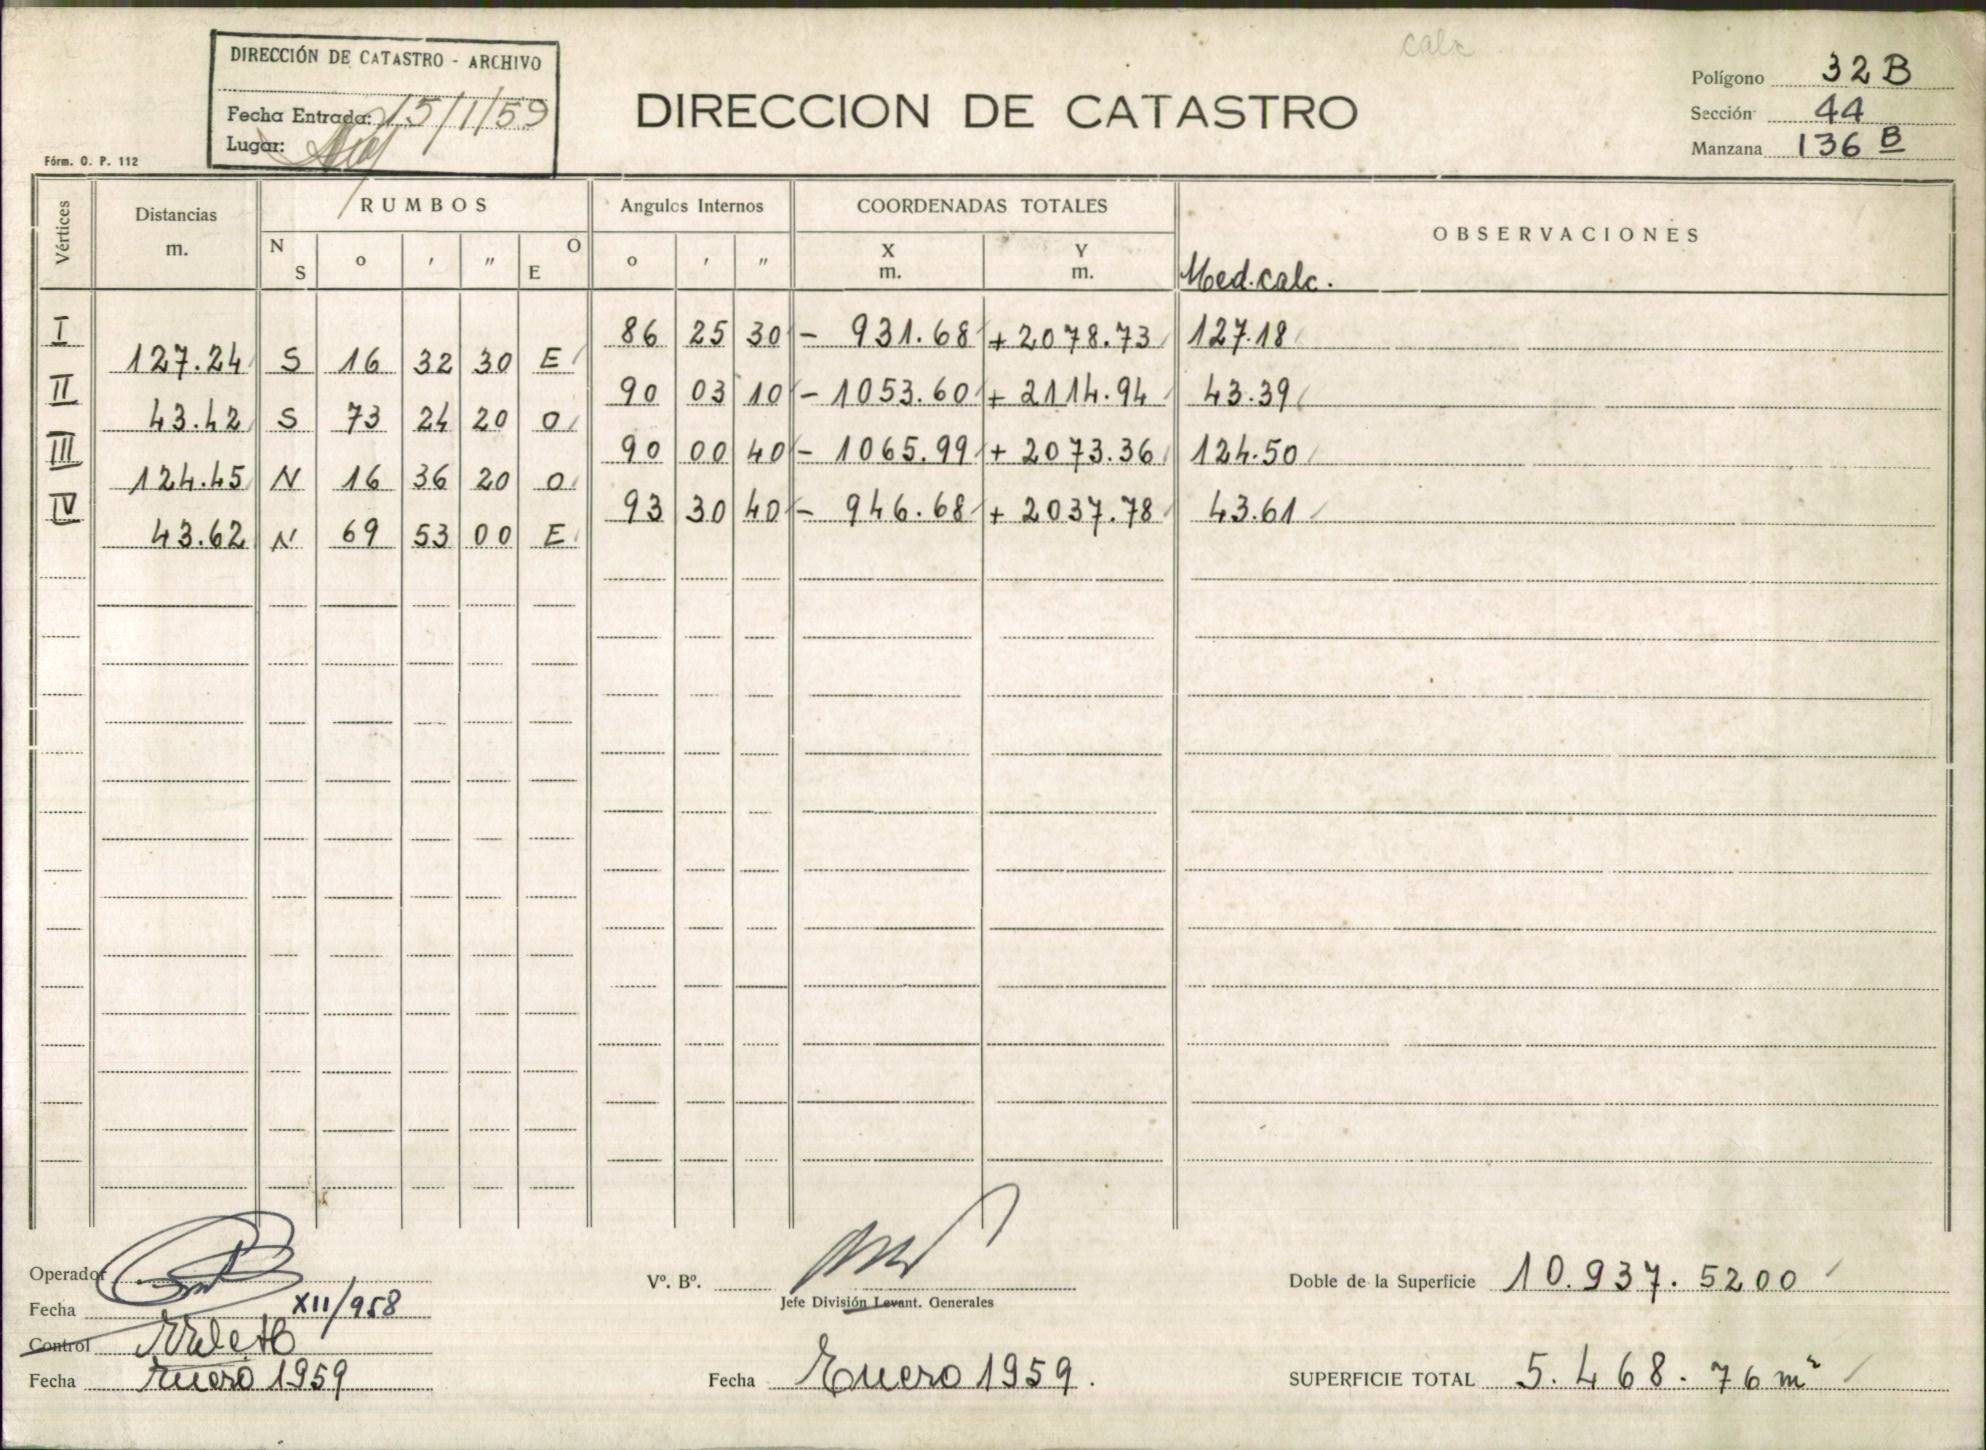 calc
DIRECCIÓN DE CATASTRO - ARCHIVO
Fecha Entrada: 15/1/59
Lugar:
DIRECCION DE CATASTRO
Polígono 32 B
Sección 44
Manzana 136 B
Fórm. O. P. 112
Vértices
Distancias m.
RUMBOS
Angulos Internos
COORDENADAS TOTALES
OBSERVACIONES
N S o ' " O E
o ' "
X m.
Y m.
Med. calc.
I 86 25 30 - 931.68 + 2078.73 127.18
127.24 S 16 32 30 E
II 90 03 10 - 1053.60 + 2114.94 43.39
43.42 S 73 24 20 O
III 90 00 40 - 1065.99 + 2073.36 124.50
124.45 N 16 36 20 O
IV 93 30 40 - 946.68 + 2037.78 43.61
43.62 N 69 53 00 E
Operador
Fecha XII/958
Control
Fecha Enero 1959
Vº. Bº.
Jefe División Levant. Generales
Fecha Enero 1959.
Doble de la Superficie 10.937.5200
SUPERFICIE TOTAL 5.468.76 m²